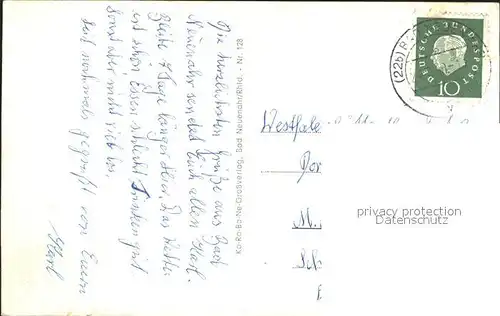 Die herzlichsten Grüße aus Bad
Neuenahr sendet Euch allen Karl.
Bleibe 4 Tage länger hier. Das Wetter
ist schön Essen schlecht Trinken gut
sonst aber nicht viel los.
Seid nochmals gegrüßt von Eurem
Karl
Ka-Ro-Ba-Ne-Großverlag, Bad Neuenahr/Rhld. - Nr. 128
(22b)
DEUTSCHE BUNDESPOST
10
Westfale
Dor
M.
privacy protection
Datenschutz